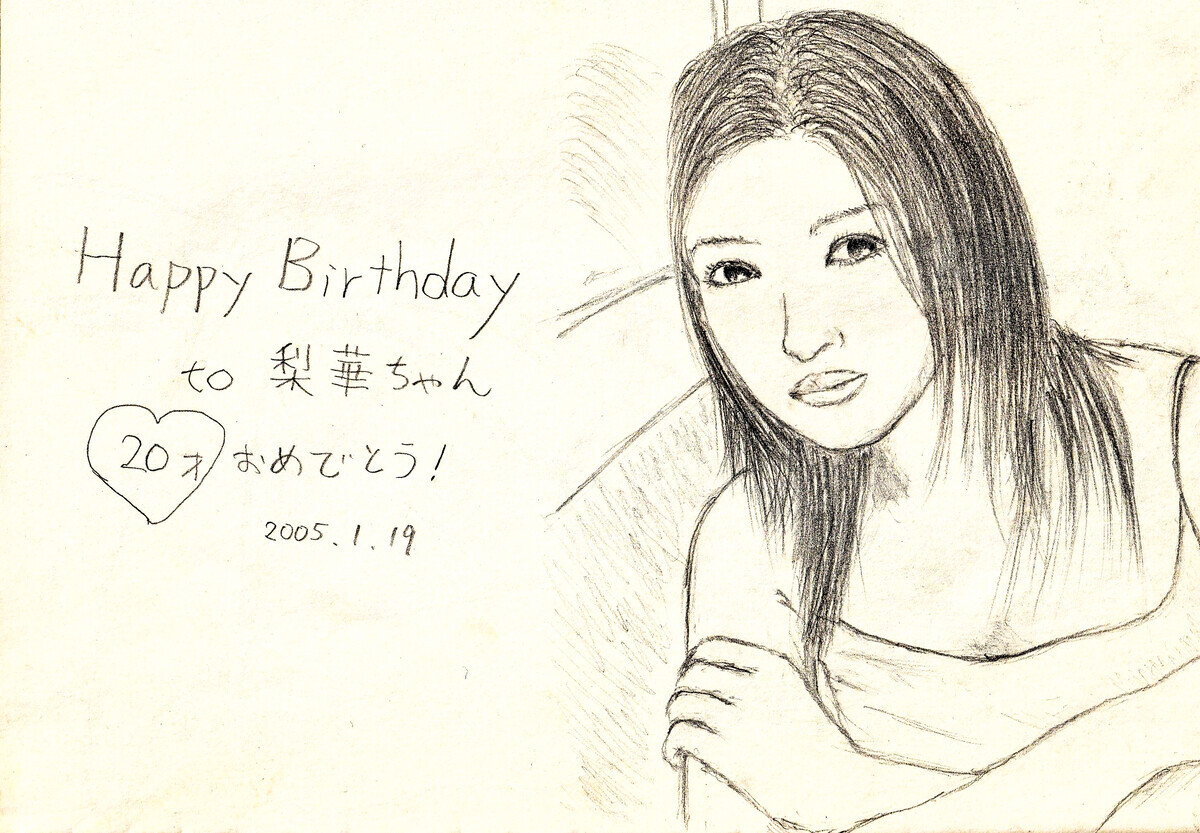 Happy Birthday
to 梨華ちゃん
20才 おめでとう!
2005.1.19